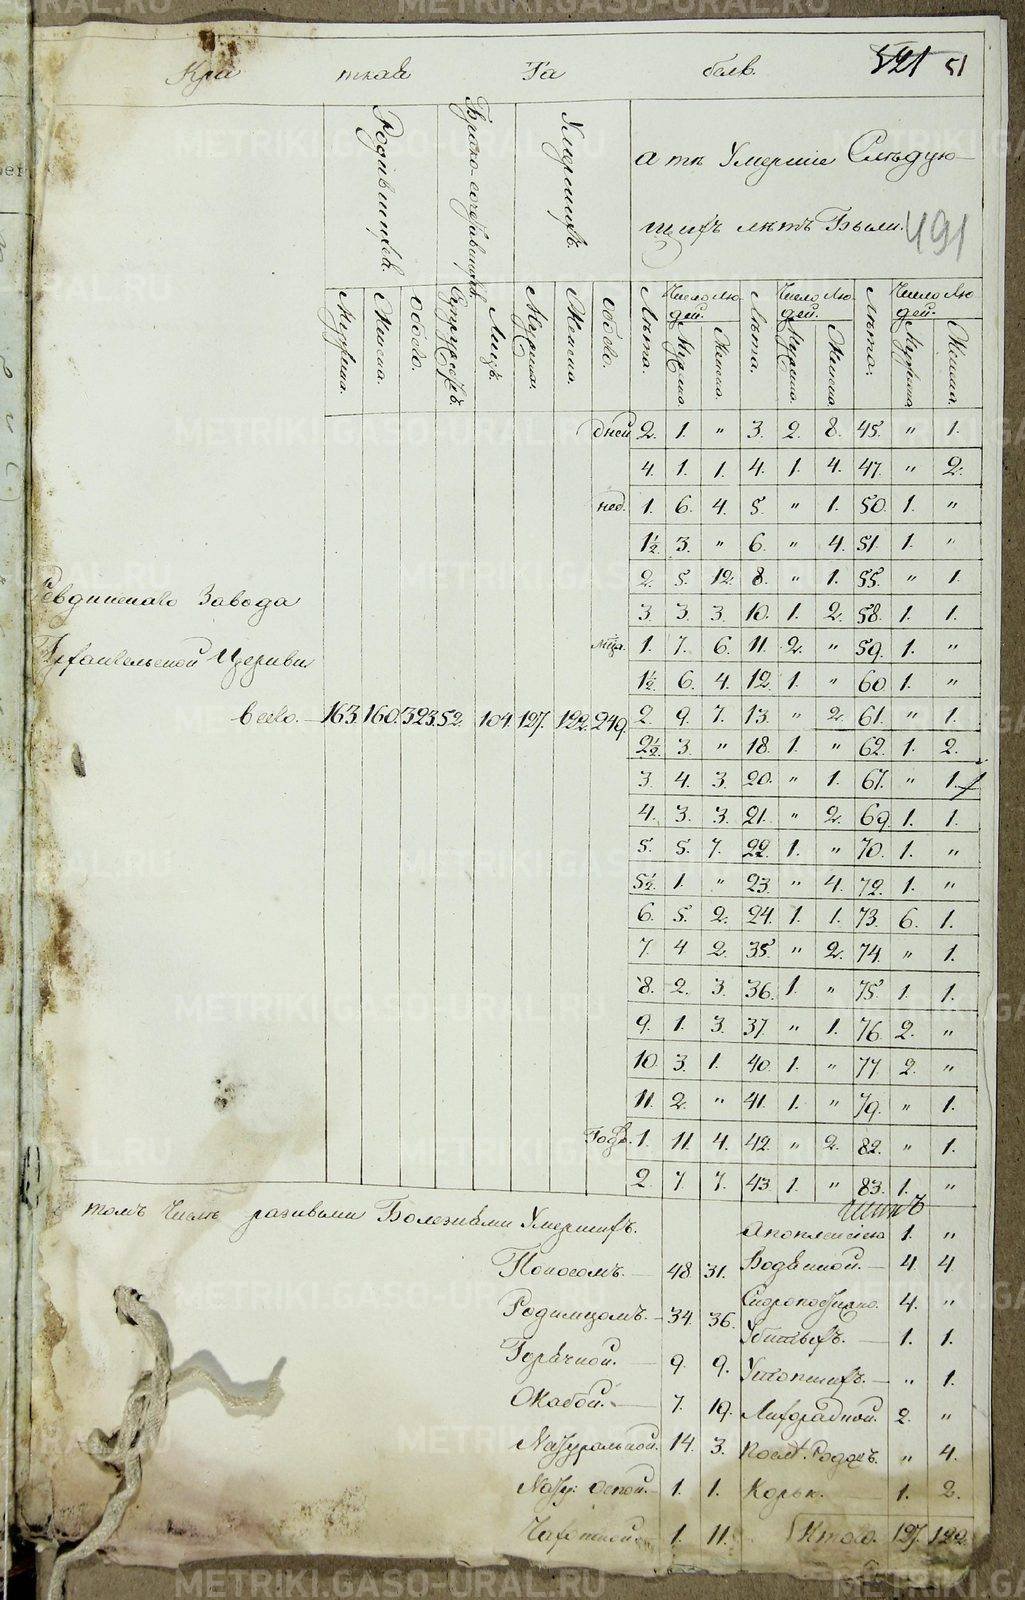 Кра ткая Та бель 521 51
Родившихся.
Брако-сочетавшихся.
Умершихъ.
а тѣ Умершіе Слѣдую-
щихъ лѣтъ Были. 491
Мужеска. Женска. Обоего. Супружествъ. Лицъ. Мужска. Женска. Обоего. Лѣта. Число Людей. Мужска. Женска. Лѣта. Число Людей. Мужска. Женска. Лѣта. Число Людей. Мужска. Женска.
дней 2. 1. " 3. 2. 8. 45. " 1.
4. 1. 1. 4. 1. 4. 47. " 2.
нед. 1. 6. 4. 5. " 1. 50. 1. "
1½ 3. " 6. " 4. 51. 1. "
2. 5. 12. 8. " 1. 55. " 1.
Ревдинскаго Завода
3 3. 3. 10. 1. 2. 58. 1. 1.
мѣся. 1. 7. 6. 11. 2. " 59. 1. "
Архангельской Церкви
1½. 6. 4. 12. 1. " 60 1. "
всего. 163. 160. 323. 52. 104. 127. 122. 249. 2. 9. 7. 13. " 2. 61. " 1.
2½. 3. " 18. 1. " 62. 1. 2.
3 4. 3. 20. " 1. 67. " 1.
4. 3. 3. 21. " 2. 69. 1. 1.
5. 5. 7. 22. 1. " 70. 1. "
5½. 1. " 23. " 4. 72. 1. "
6. 5. 2. 24. 1. 1. 73. 6. 1.
7. 4 2. 35. " 2. 74. " 1.
8. 2. 3. 36. 1. " 75. 1. 1.
9. 1. 3. 37. " 1. 76. 2. "
10. 3. 1. 40. 1. " 77. 2. "
11. 2. " 41. 1. " 79. " 1.
Годъ. 1. 11. 4. 42. " 2. 82. " 1.
2. 7. 7. 43. 1. " 83. 1. "
томъ Числѣ разными Болезнями Умершихъ.
Поносомъ. 48. 31.
Родимцомъ. 34. 36.
Горячкой. 9. 9.
7. 19.
Натуральной. 14. 3.
Нату: оспой. 1. 1.
Чахоткой 1. 11.
Апоплексіею 1. "
Водянкой. 4. 4.
Скоропостижно. 4. "
Убитыхъ. 1. 1.
Утопшихъ. " 1.
Лихорадкой. 2. "
Посл. Родахъ. " 4.
Корью. 1. 2.
Итого. 127. 122.
METRIKI.GASO-URAL.RU